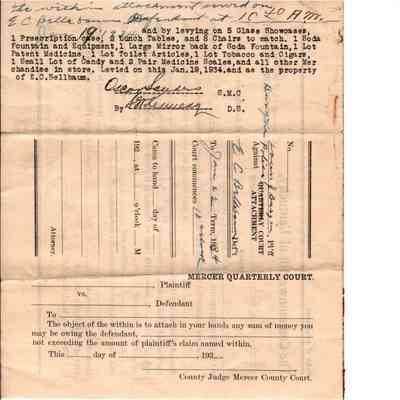 the within attachment served on
E C Bellbaum Defendant at 10 20 A.M.
and by levying on 5 Glass Showcases,
1 Prescription case, 2 Lunch Tables, and 8 Chairs to match. 1 Soda
Fountain and Equipment, 1 Large Mirror back of Soda Fountain, 1 Lot
Patent Medicine, 1 Lot Toilet Articles, 1 Lot Tobacco and Cigars,
1 Small Lot of Candy and 2 Pair Medicine Scales, and all other Mer
chandise in store. Levied on this Jan. 19, 1934, and as the property
of E.C. Bellbaum.
Oscar Sanders S.M.C
By D.S.
No.
Pl'ff
Against
QUARTERLY COURT
ATTACHMENT
E C Bellbaum Def't
To Jan 22 Term, 1934
Court commences
Came to hand day of
192 , at o'clock M
Attorney.
MERCER QUARTERLY COURT.
, Plaintiff
vs.
, Defendant
To
The object of the within is to attach in your hands any sum of money you
may be owing the defendant,
not exceeding the amount of plaintiff's claim named within.
This day of , 193
County Judge Mercer County Court.